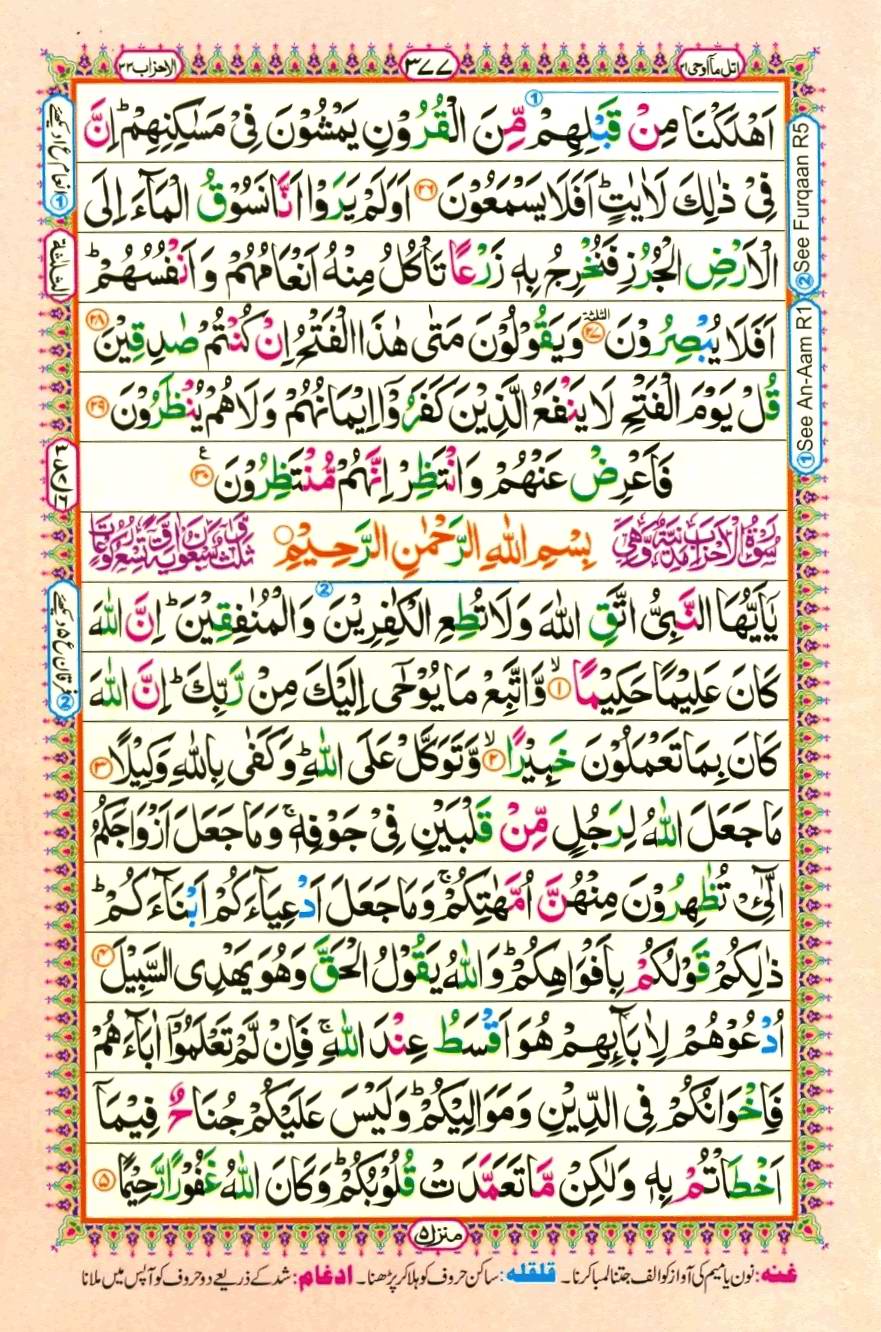 اتل مآ اوحی ۲۱
۳۷۷
الاحزاب ۳۳
اَهْلَكْنَا مِنْ قَبْلِهِمْ مِّنَ الْقُرُوْنِ يَمْشُوْنَ فِيْ مَسٰكِنِهِمْ ؕ اِنَّ
فِيْ ذٰلِكَ لَاٰيٰتٍ ؕ اَفَلَا يَسْمَعُوْنَ ۲۶ اَوَلَمْ يَرَوْا اَنَّا نَسُوْقُ الْمَآءَ اِلَى
الْاَرْضِ الْجُرُزِ فَنُخْرِجُ بِهٖ زَرْعًا تَاْكُلُ مِنْهُ اَنْعَامُهُمْ وَاَنْفُسُهُمْ ؕ
اَفَلَا يُبْصِرُوْنَ ۲۷ وَيَقُوْلُوْنَ مَتٰى هٰذَا الْفَتْحُ اِنْ كُنْتُمْ صٰدِقِيْنَ ۲۸
قُلْ يَوْمَ الْفَتْحِ لَا يَنْفَعُ الَّذِيْنَ كَفَرُوْٓا اِيْمَانُهُمْ وَلَا هُمْ يُنْظَرُوْنَ ۲۹
فَاَعْرِضْ عَنْهُمْ وَانْتَظِرْ اِنَّهُمْ مُّنْتَظِرُوْنَ ۳۰ ع
سُوْرَةُ الْاَحْزَابِ مَدَنِيَّةٌ وَّهِيَ بِسْمِ اللّٰهِ الرَّحْمٰنِ الرَّحِيْمِ ثَلٰثٌ وَّسَبْعُوْنَ اٰيَةً وَّتِسْعُ رُكُوْعَاتٍ
يٰٓاَيُّهَا النَّبِيُّ اتَّقِ اللّٰهَ وَلَا تُطِعِ الْكٰفِرِيْنَ وَالْمُنٰفِقِيْنَ ؕ اِنَّ اللّٰهَ
كَانَ عَلِيْمًا حَكِيْمًا ۱ وَّاتَّبِعْ مَا يُوْحٰٓى اِلَيْكَ مِنْ رَّبِّكَ ؕ اِنَّ اللّٰهَ
كَانَ بِمَا تَعْمَلُوْنَ خَبِيْرًا ۲ وَّتَوَكَّلْ عَلَى اللّٰهِ ؕ وَكَفٰى بِاللّٰهِ وَكِيْلًا ۳
مَا جَعَلَ اللّٰهُ لِرَجُلٍ مِّنْ قَلْبَيْنِ فِيْ جَوْفِهٖ ۚ وَمَا جَعَلَ اَزْوَاجَكُمُ
الّٰٓـِٔيْ تُظٰهِرُوْنَ مِنْهُنَّ اُمَّهٰتِكُمْ ۚ وَمَا جَعَلَ اَدْعِيَآءَكُمْ اَبْنَآءَكُمْ ؕ
ذٰلِكُمْ قَوْلُكُمْ بِاَفْوَاهِكُمْ ؕ وَاللّٰهُ يَقُوْلُ الْحَقَّ وَهُوَ يَهْدِي السَّبِيْلَ ۴
اُدْعُوْهُمْ لِاٰبَآئِهِمْ هُوَ اَقْسَطُ عِنْدَ اللّٰهِ ۚ فَاِنْ لَّمْ تَعْلَمُوْٓا اٰبَآءَهُمْ
فَاِخْوَانُكُمْ فِي الدِّيْنِ وَمَوَالِيْكُمْ ؕ وَلَيْسَ عَلَيْكُمْ جُنَاحٌ فِيْمَآ
اَخْطَاْتُمْ بِهٖ وَلٰكِنْ مَّا تَعَمَّدَتْ قُلُوْبُكُمْ ؕ وَكَانَ اللّٰهُ غَفُوْرًا رَّحِيْمًا ۵
② See Furqaan R5
① See An-Aam R1
① انعام ع۱ دیکھئے
② فرقان ع۵ دیکھئے
منزل ۵
غنه: نون یا میم کی آواز کو الف جتنا لمبا کرنا۔ قلقله: ساکن حروف کو ہلا کر پڑھنا۔ ادغام: شد کے ذریعے دو حروف کو آپس میں ملانا